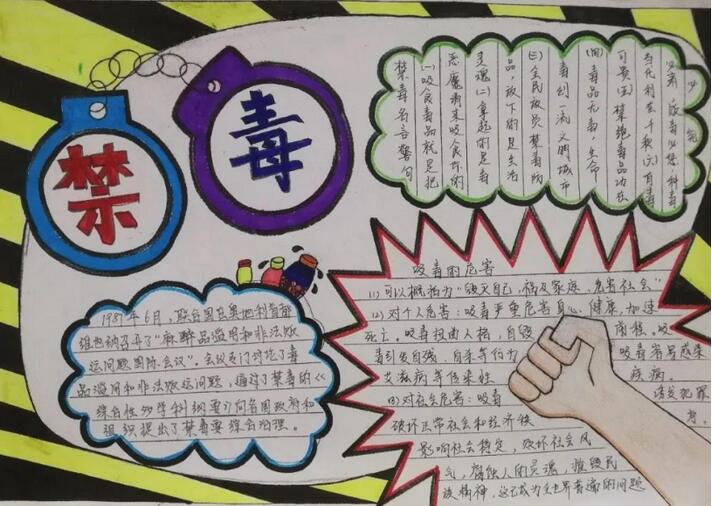 禁
毒
禁毒名言警句
(一)吸食毒品就是把
恶魔请来吸食你的
灵魂(二)拿起的是毒
品,放下的是生活
(三)全民放员禁毒防
毒创一流文明城市
(四)毒品无毒,生命
可贵(五)禁绝毒品功在
当代利在千秋(六)有毒
必肃,贩毒必惩种毒
必究
1987年6月,联合国在奥地利首都
维也纳召开了“麻醉品滥用和非法贩
运问题国际会议”。会议专门讨论了毒
品滥用和非法贩运问题,通过了禁毒的《
综合性多学科纲要》向各国政府和
组织提出了禁毒要综合治理。
吸毒的危害
(1)可以概括为“毁灭自己,祸及家庭,危害社会”
(2)对个人危害:吸毒严重危害身心,健康,加速
死亡。吸毒扭曲人格,自毁 前程。吸
毒引发自残、自杀等行为 吸毒容易感染
艾滋病等传染性 疾病。
(3)对社会危害:吸毒 诱发犯罪
破坏正常社会和经济秩
影响社会稳定,败坏社会风
气,腐蚀人的灵魂,摧毁民
族精神,这已成为全世界普遍的问题